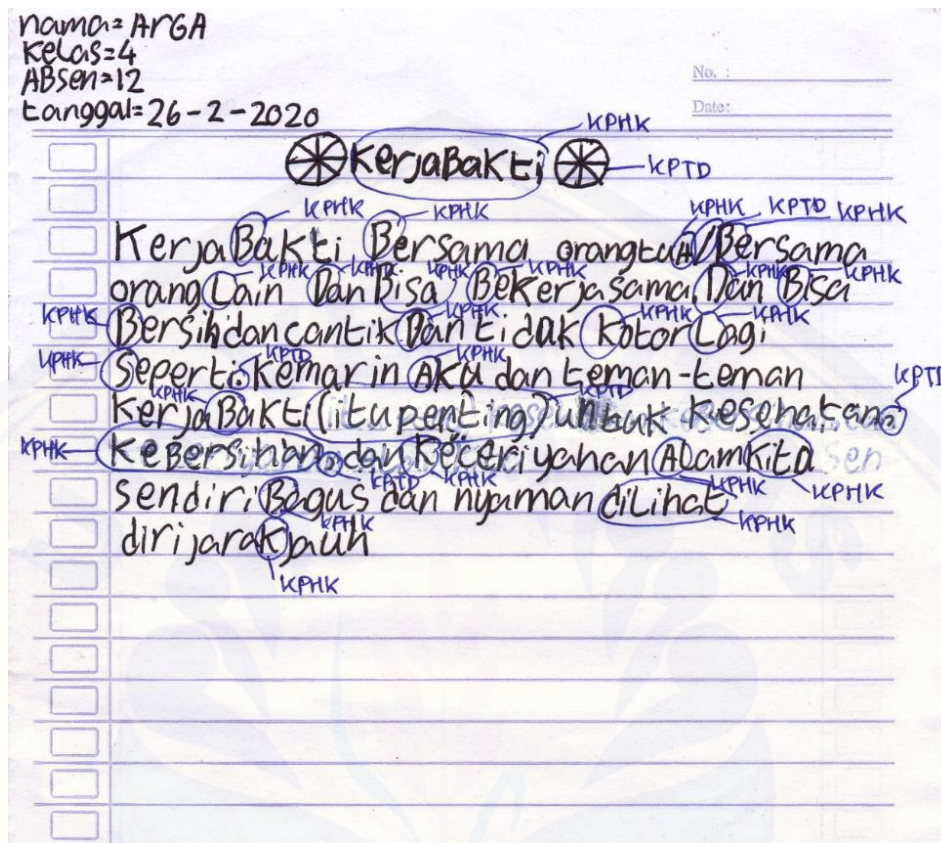 nama= ArGA
Kelas=4
ABsen=12
tanggal= 26-2-2020
No. :
Date:
KPHK
KerjaBaKti
KPTD
KPHK KPHK KPHK KPTD KPHK
KerjaBaKti Bersama orangtuA/Bersama
KPHK KPHK KPHK KPHK KPHK KPHK
orang Lain Dan Bisa BeKerjasama Dan Bisa
KPHK KPHK KPHK KPHK
Bersihdancantik Dan tidak Kotor Lagi
KPHK KPTD KPHK KPTD
Seperti. Kemarin AKu dan teman-teman
KPHK KPTD
KerjaBaKti (itu penting) untuk Kesehatan.
KPHK
KeBersihan. dan Keceriyahan ALamKita
KPTD KPHK KPHK KPHK
sendiri Bagus dan nyaman diLihat
KPHK KPHK
dirijaraKjauh
KPHK